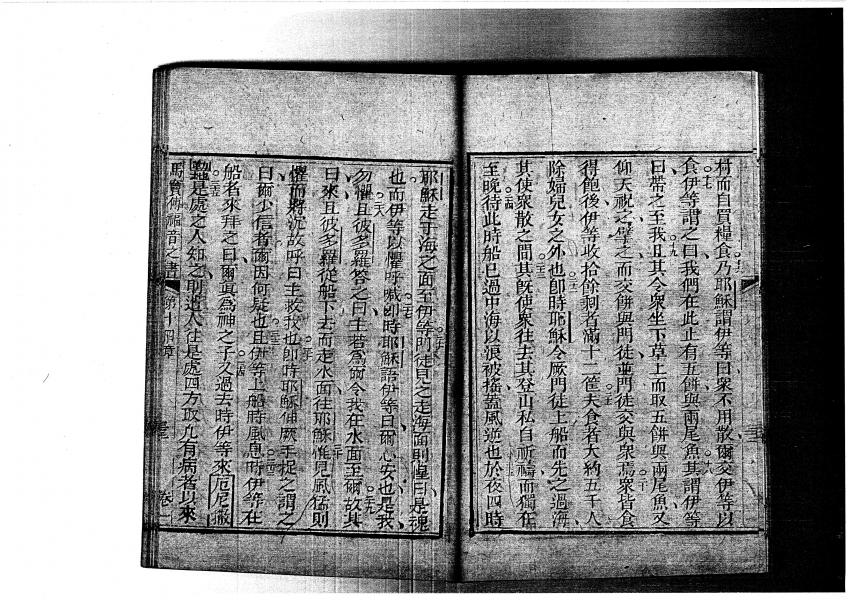 村而自買糧食乃耶穌謂伊等曰衆不用散爾交伊等以
食伊等謂之曰我們在此止有五餅與兩尾魚其謂伊等
曰帶之至我且其令衆坐下草上而取五餅與兩尾魚又
仰天祝之擘之而交餅與門徒並門徒交與衆焉衆皆食
得飽後伊等收拾餘剩者滿十二筐夫食者大約五千人
除婦兒女之外也即時耶穌令厥門徒上船而先之過海
其使衆散之間其既使衆往去其登山私自祈禱而獨在
至晚待此時船已過中海以浪被搖蓋風逆也於夜四時
耶穌走于海之面至伊等門徒見之走海面則惶曰是魂
也而伊等以懼呼喊即時耶穌語伊等曰爾心安也是我
勿懼且彼多羅答之曰主若爲爾令我在水面至爾故其
曰來且彼多羅從船下去而走水面往耶穌惟見風猛則
懼而將沉故呼曰主救我也即時耶穌伸厥手捉之謂之
曰爾少信者爾因何疑也且伊等上船時風息時伊等在
船者來拜之曰爾眞爲神之子久過去時伊等來厄尼撒
是處之人知之則遣人往是處四方取凡有病者以來
馬竇傳福音之書 第十四章